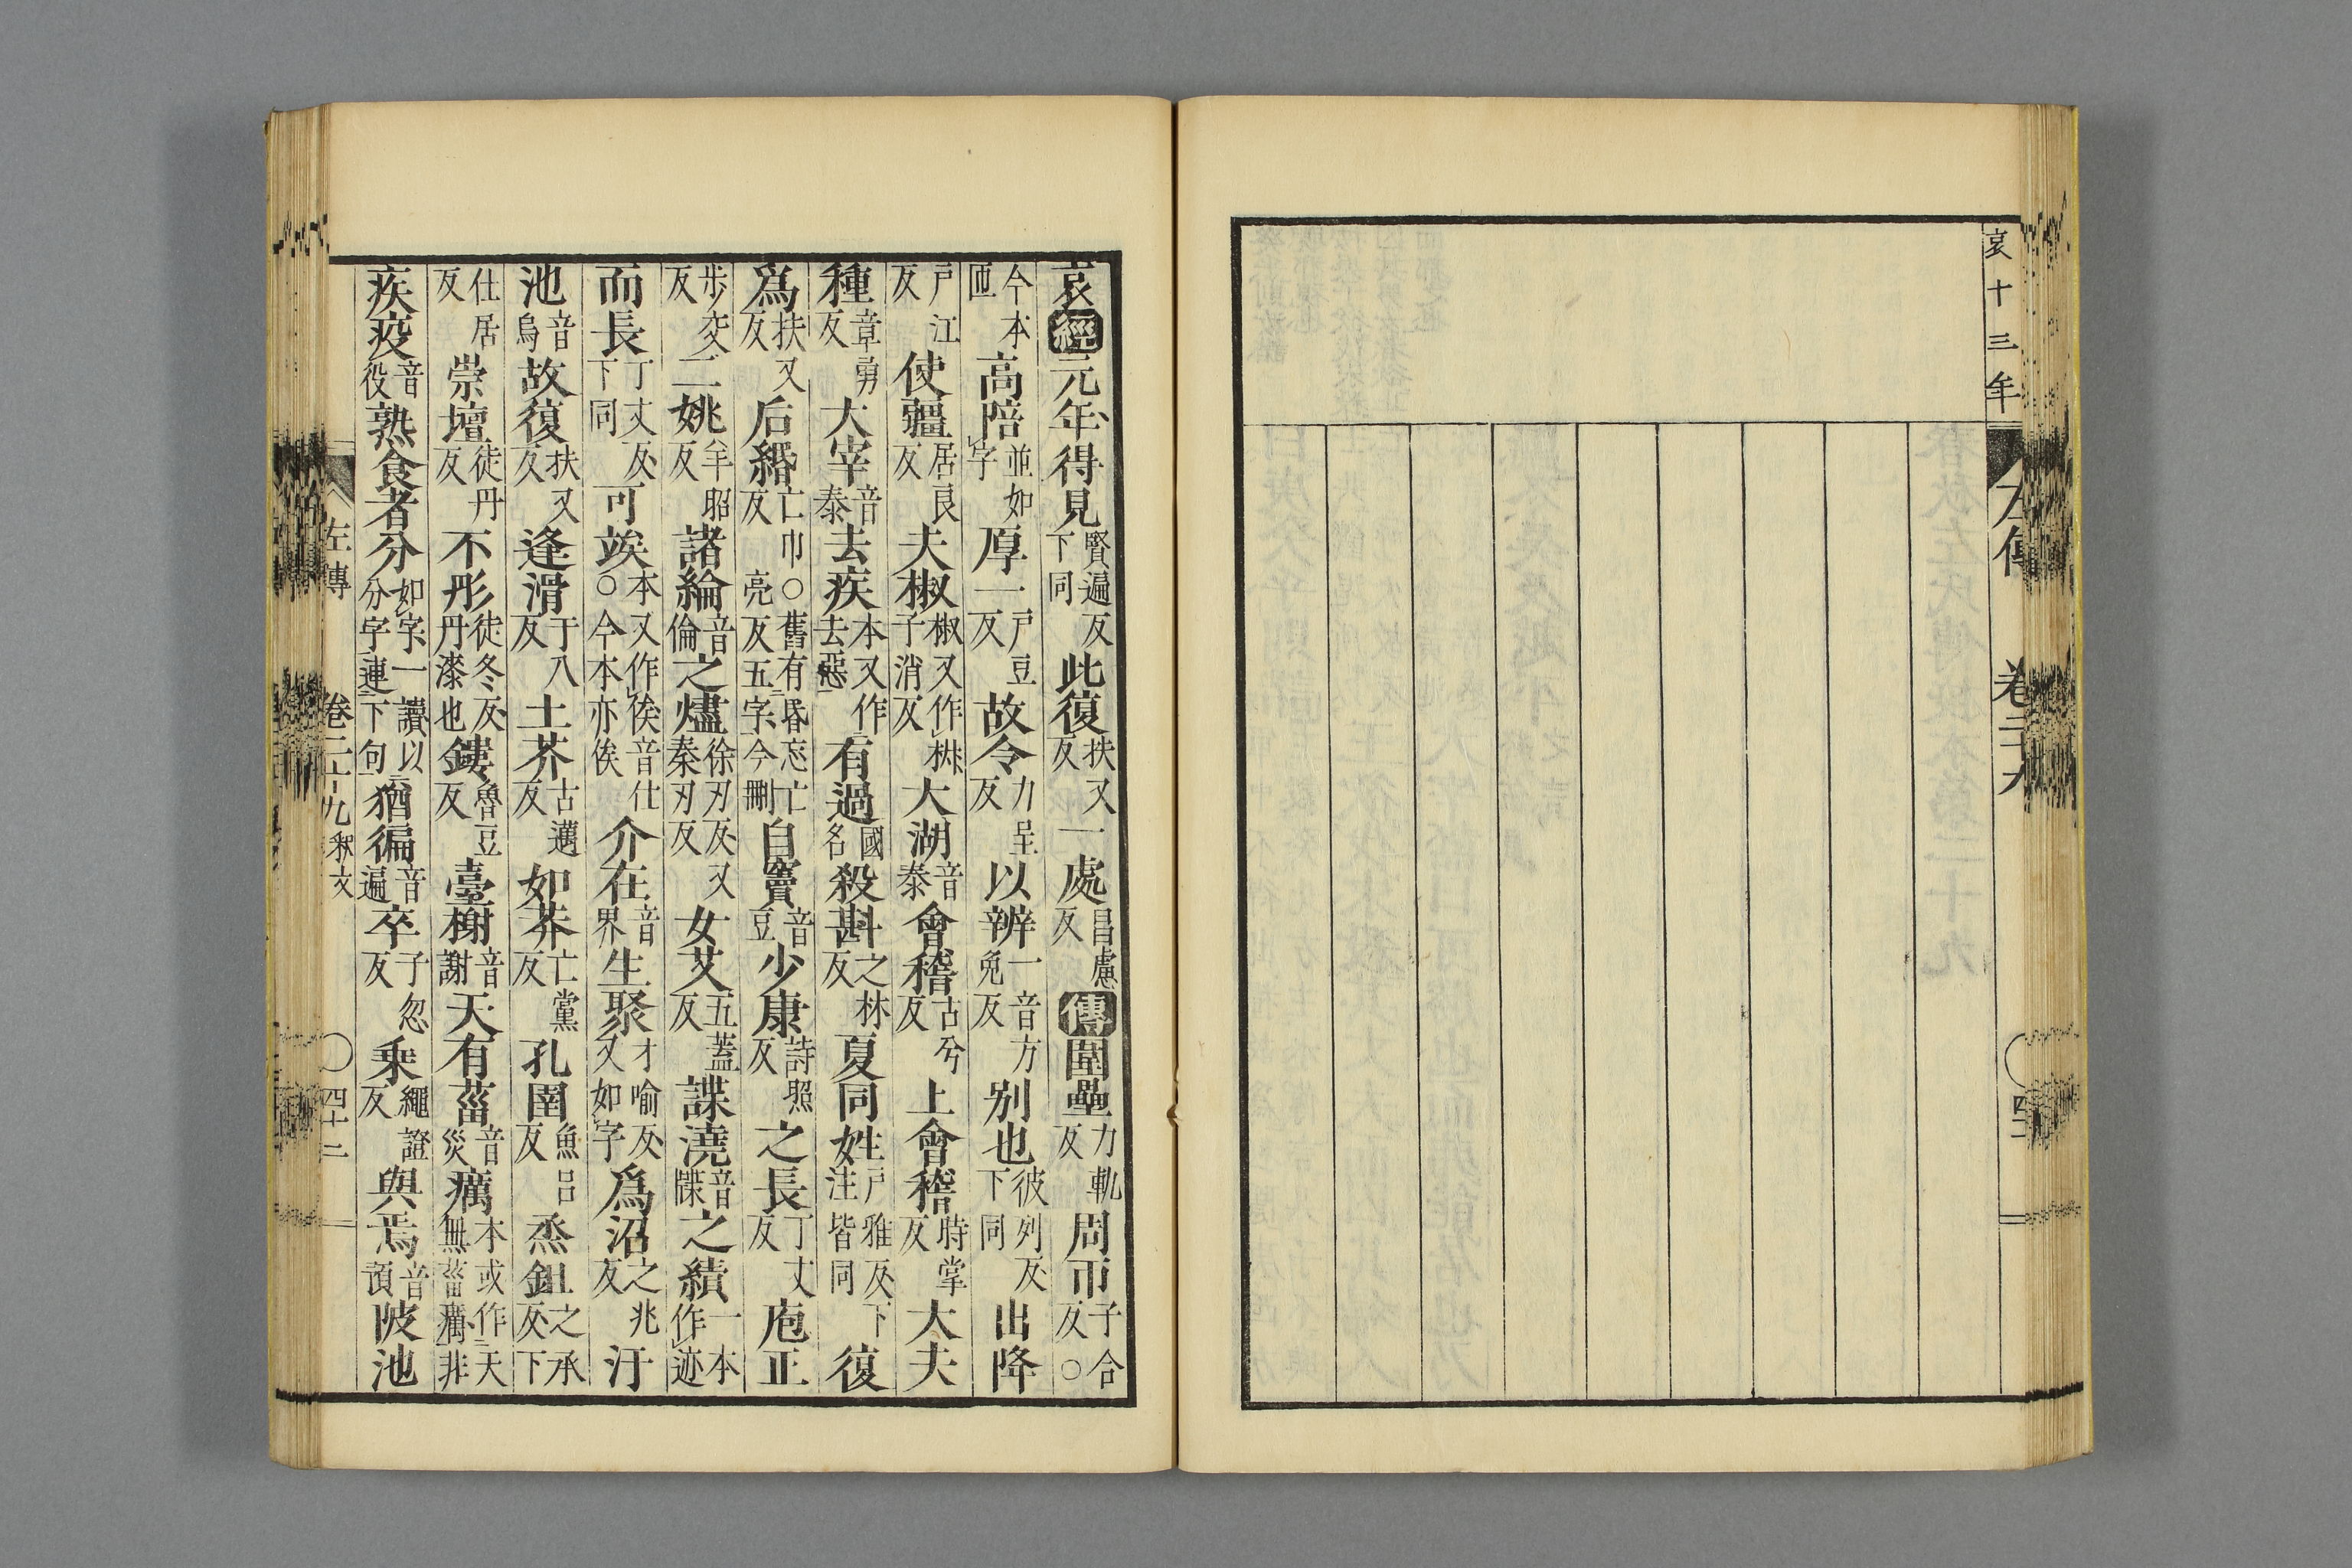 哀十三年
左傳 卷二十九 四十一
哀經元年得見賢遍反下同此復扶又反一處昌慮反傳圍壘力軌反周帀子合反○
今本匝高陪並如字厚一戶豆反故令力呈反以辨一音方免反別也彼列反下同出降
戶江反使疆居良反夫椒椒又作㭻子消反大湖音泰會稽古兮反上會稽時掌反大夫
種章勇反大宰音泰去疾本又作去惡有過國名殺斟之林反夏同姓戶雅反下注皆同復
爲扶又反后緡亡巾反○舊有昬忘亡亮反五字今刪自竇音豆少康詩照反之長丁丈反庖正
步交反二姚羊昭反諸綸音倫之燼徐刃反又秦刃反女艾五蓋反諜澆音牒之績一本作迹
而長丁丈反下同可竢本又作俟音仕○今本亦俟介在音界生聚才喻反又如字爲沼之兆反汙
池音烏故復扶又反逢滑于八反土芥古邁反如莽亡黨反孔圉魚呂反烝鉏之承反下
仕居反崇壇徒丹反不彤徒冬反丹漆也鏤魯豆反臺榭音謝天有菑音災癘本或作天無菑癘非
疾疫音役熟食者分如字一讀以分字連下句猶徧音遍卒子忽反乗繩證反與焉音預陂池
左傳 卷二十九釈文 四十二